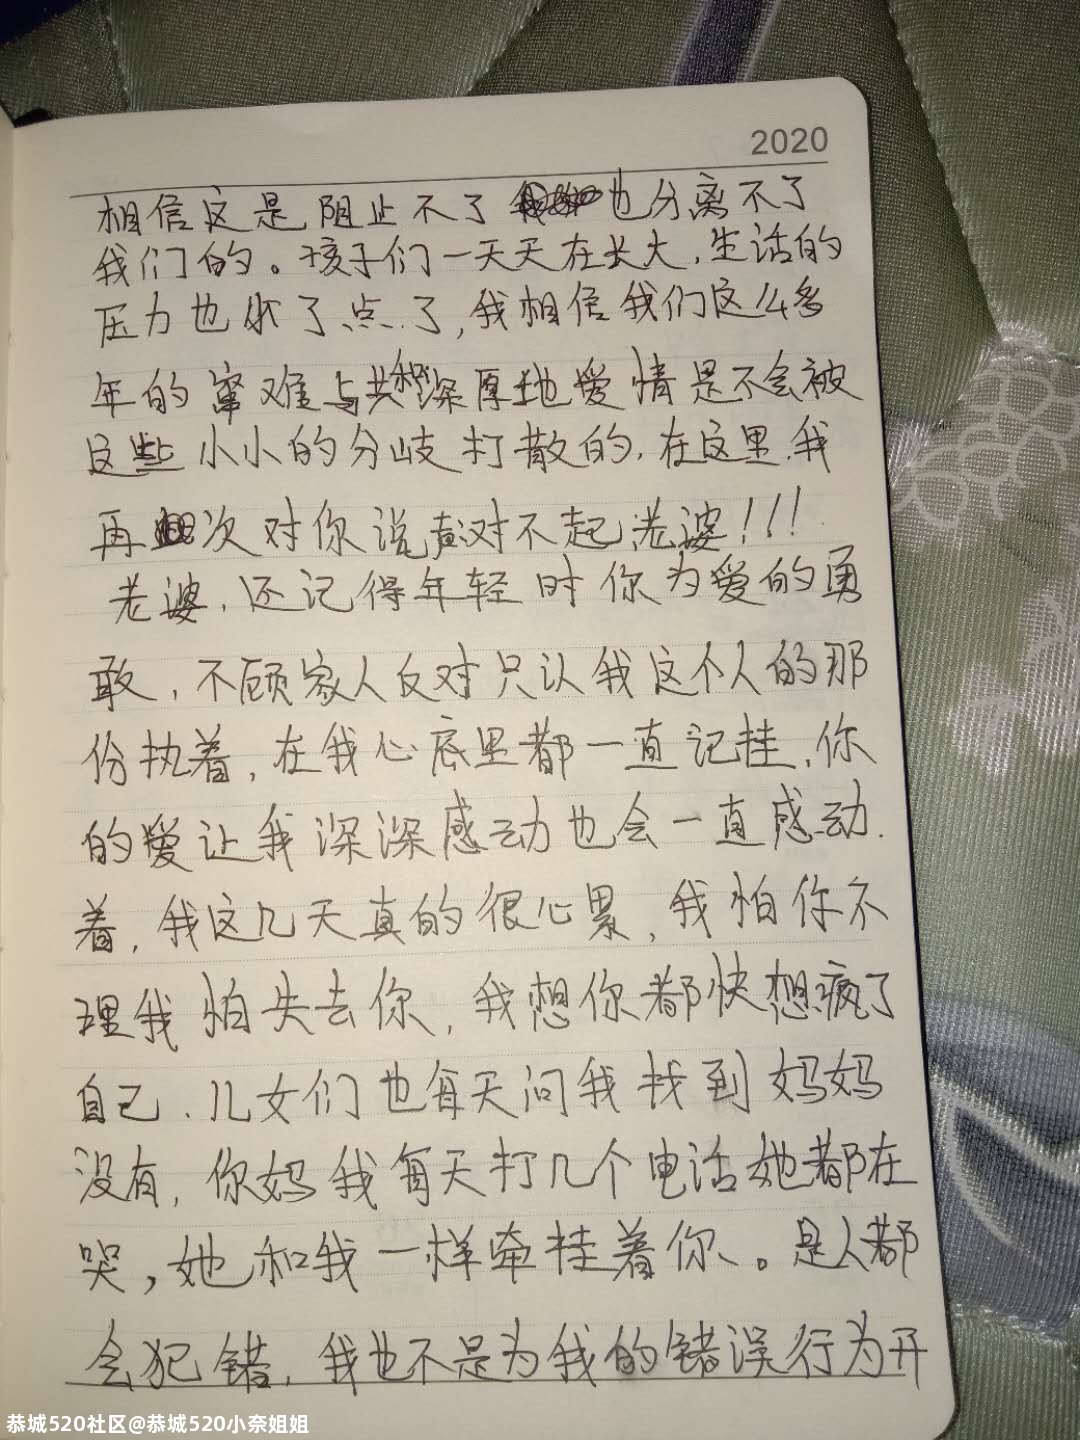 2020
相信这是阻止不了也分离不了
我们的。孩子们一天天在长大,生活的
压力也小了点了,我相信我们这么多
年的患难与共和深厚地爱情是不会被
这些小小的分歧打散的,在这里,我
再次对你说声对不起,老婆!!!
老婆,还记得年轻时你为爱的勇
敢,不顾家人反对只认我这个人的那
份执着,在我心底里都一直记挂,你
的爱让我深深感动也会一直感动
着,我这几天真的很心累,我怕你不
理我怕失去你,我想你都快想疯了
自己.儿女们也每天问我找到妈妈
没有,你妈我每天打几个电话她都在
哭,她和我一样牵挂着你、。是人都
会犯错,我也不是为我的错误行为开
恭城520社区@恭城520小奈姐姐